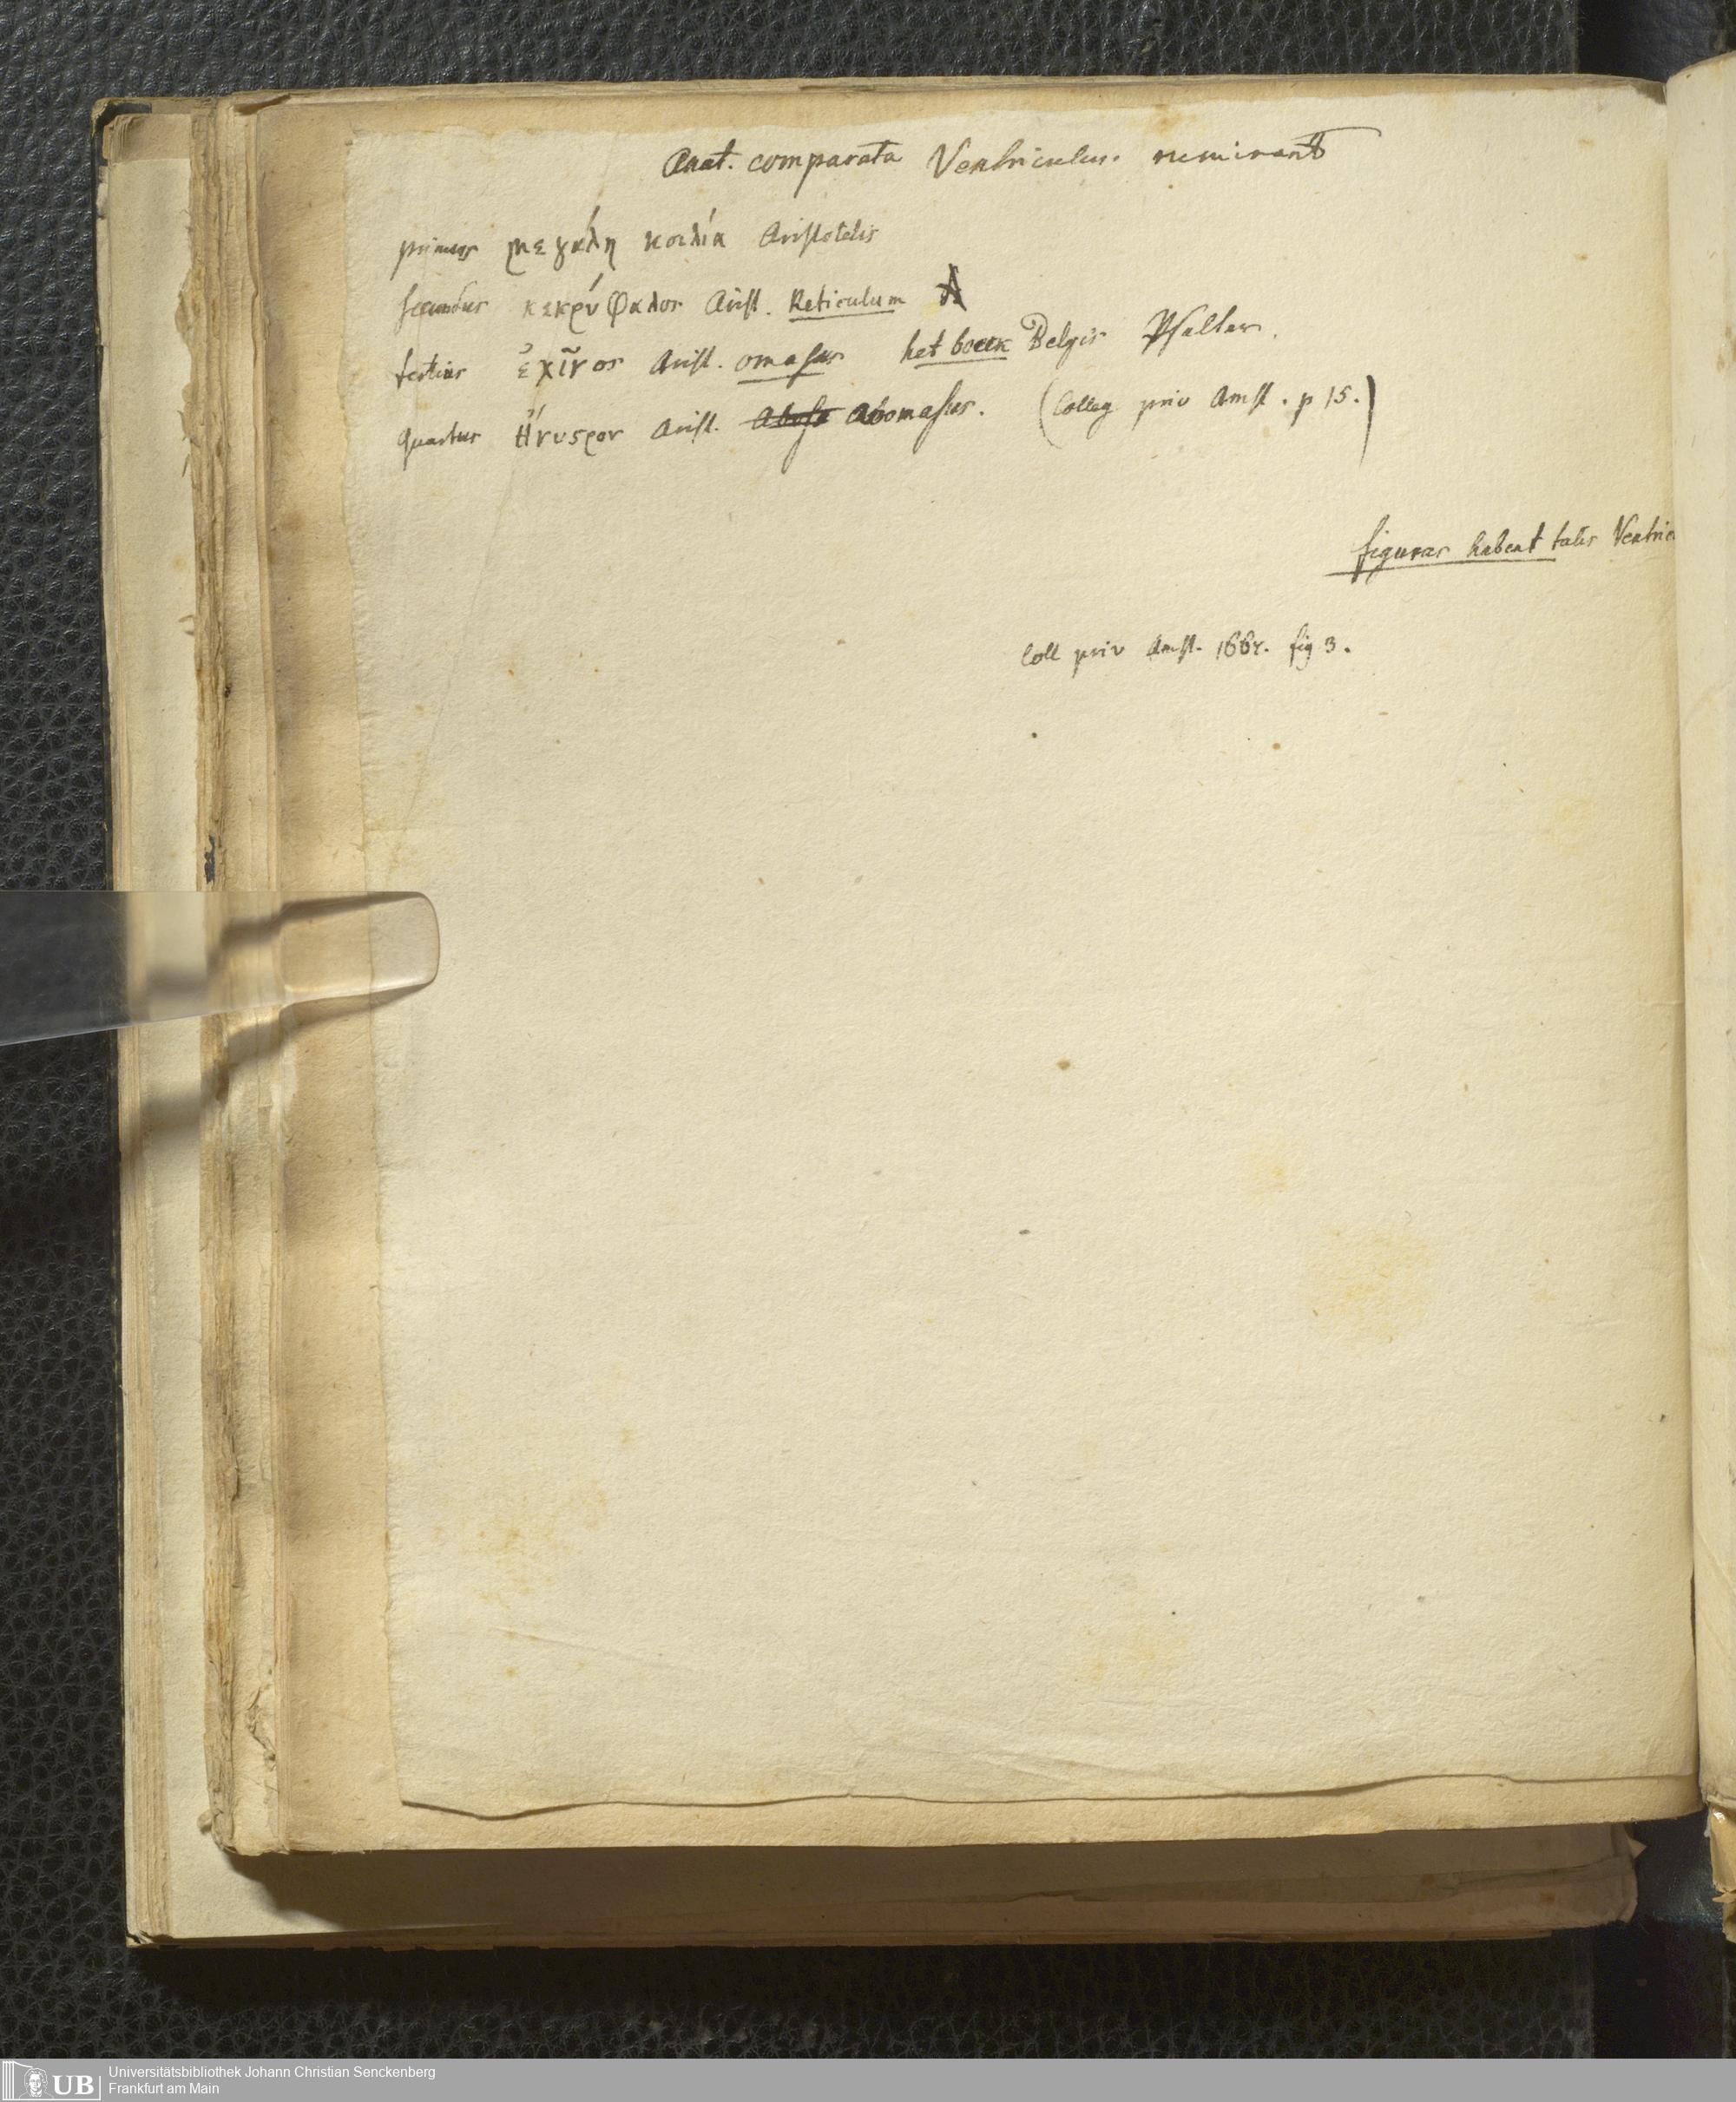 Anat. comparata Ventriculus ruminant
primus μεγάλη κοιλία Aristotelis
secundus κεκρύφαλος Arist. Reticulum
tertius ἐχῖνος Arist. omasus het boeck Belgis Psalter.
quartus ἤνυςρον Arist. abomasus. (Colleg priv Amst. p 15.)
figuras habent talis Ventric
Coll priv Amst. fig 3.
UB Universitätsbibliothek Johann Christian Senckenberg
Frankfurt am Main